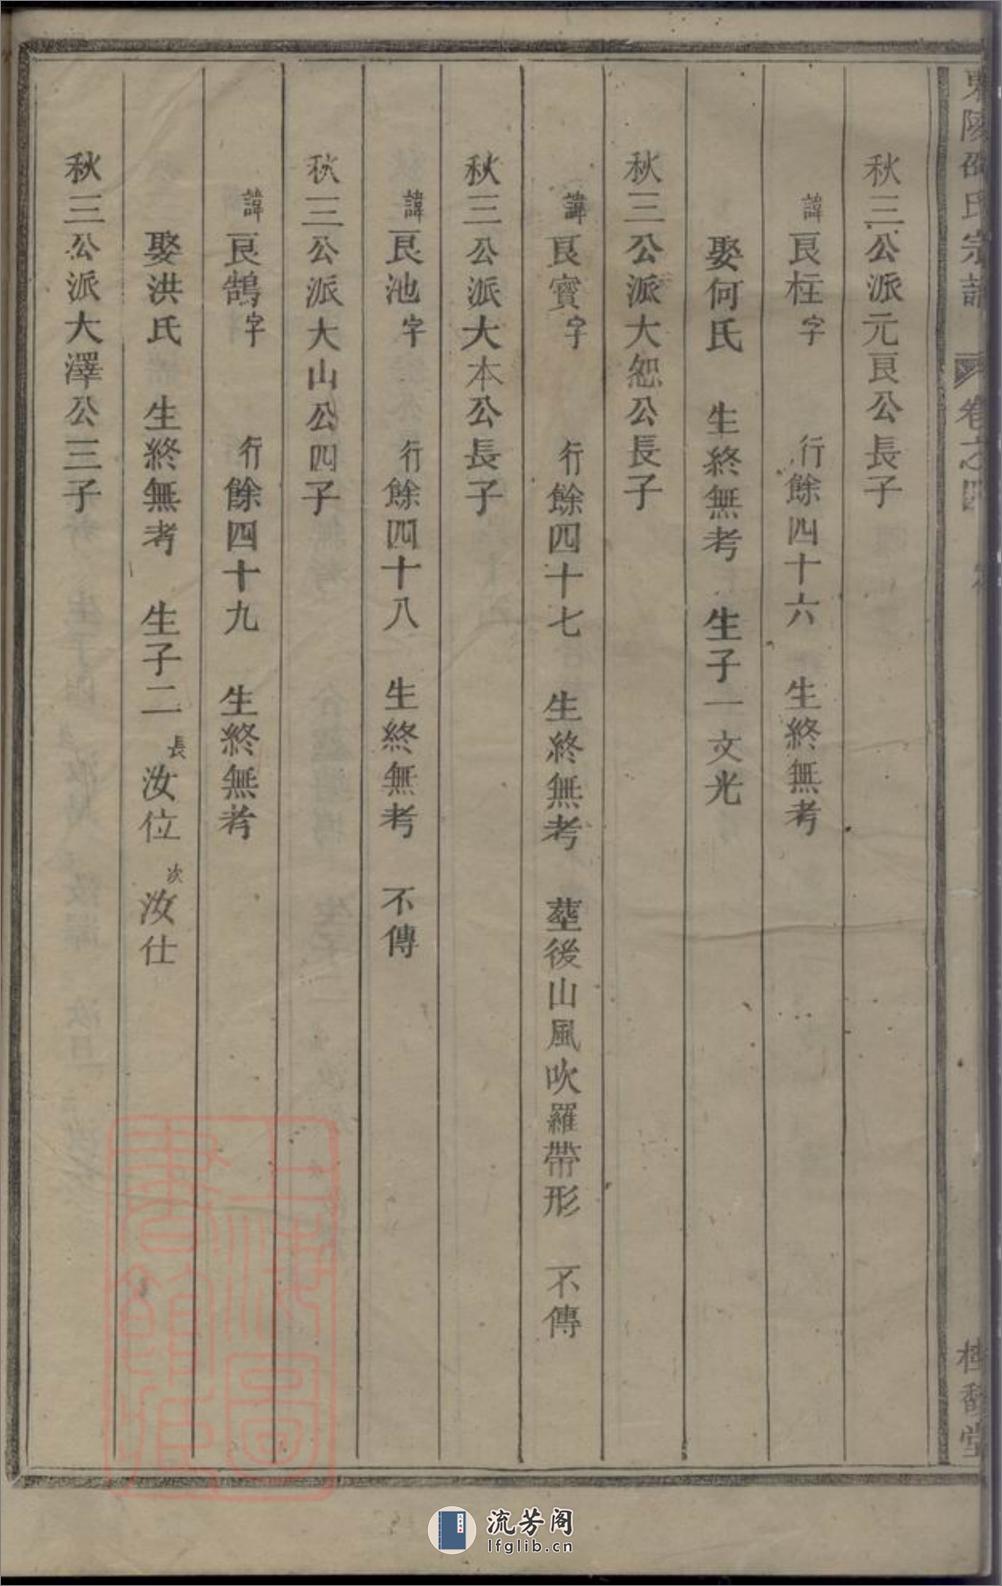 東陵邵氏宗譜 卷之四
桂馥堂
秋三公派元良公長子
諱良柱字 行餘四十六 生終無考
娶何氏 生終無考 生子一文光
秋三公派大恕公長子
諱良寶字 行餘四十七 生終無考 塟後山風吹羅帶形 不傳
秋三公派大本公長子
諱良池字 行餘四十八 生終無考 不傳
秋三公派大山公四子
諱良鵠字 行餘四十九 生終無考
娶洪氏 生終無考 生子二 長汝位 次汝仕
秋三公派大澤公三子
上海圖書館藏
流芳阁
lfglib.cn